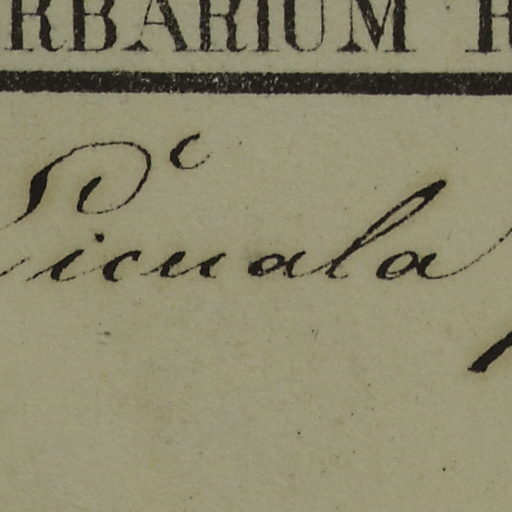 RBARIUM
Picuala